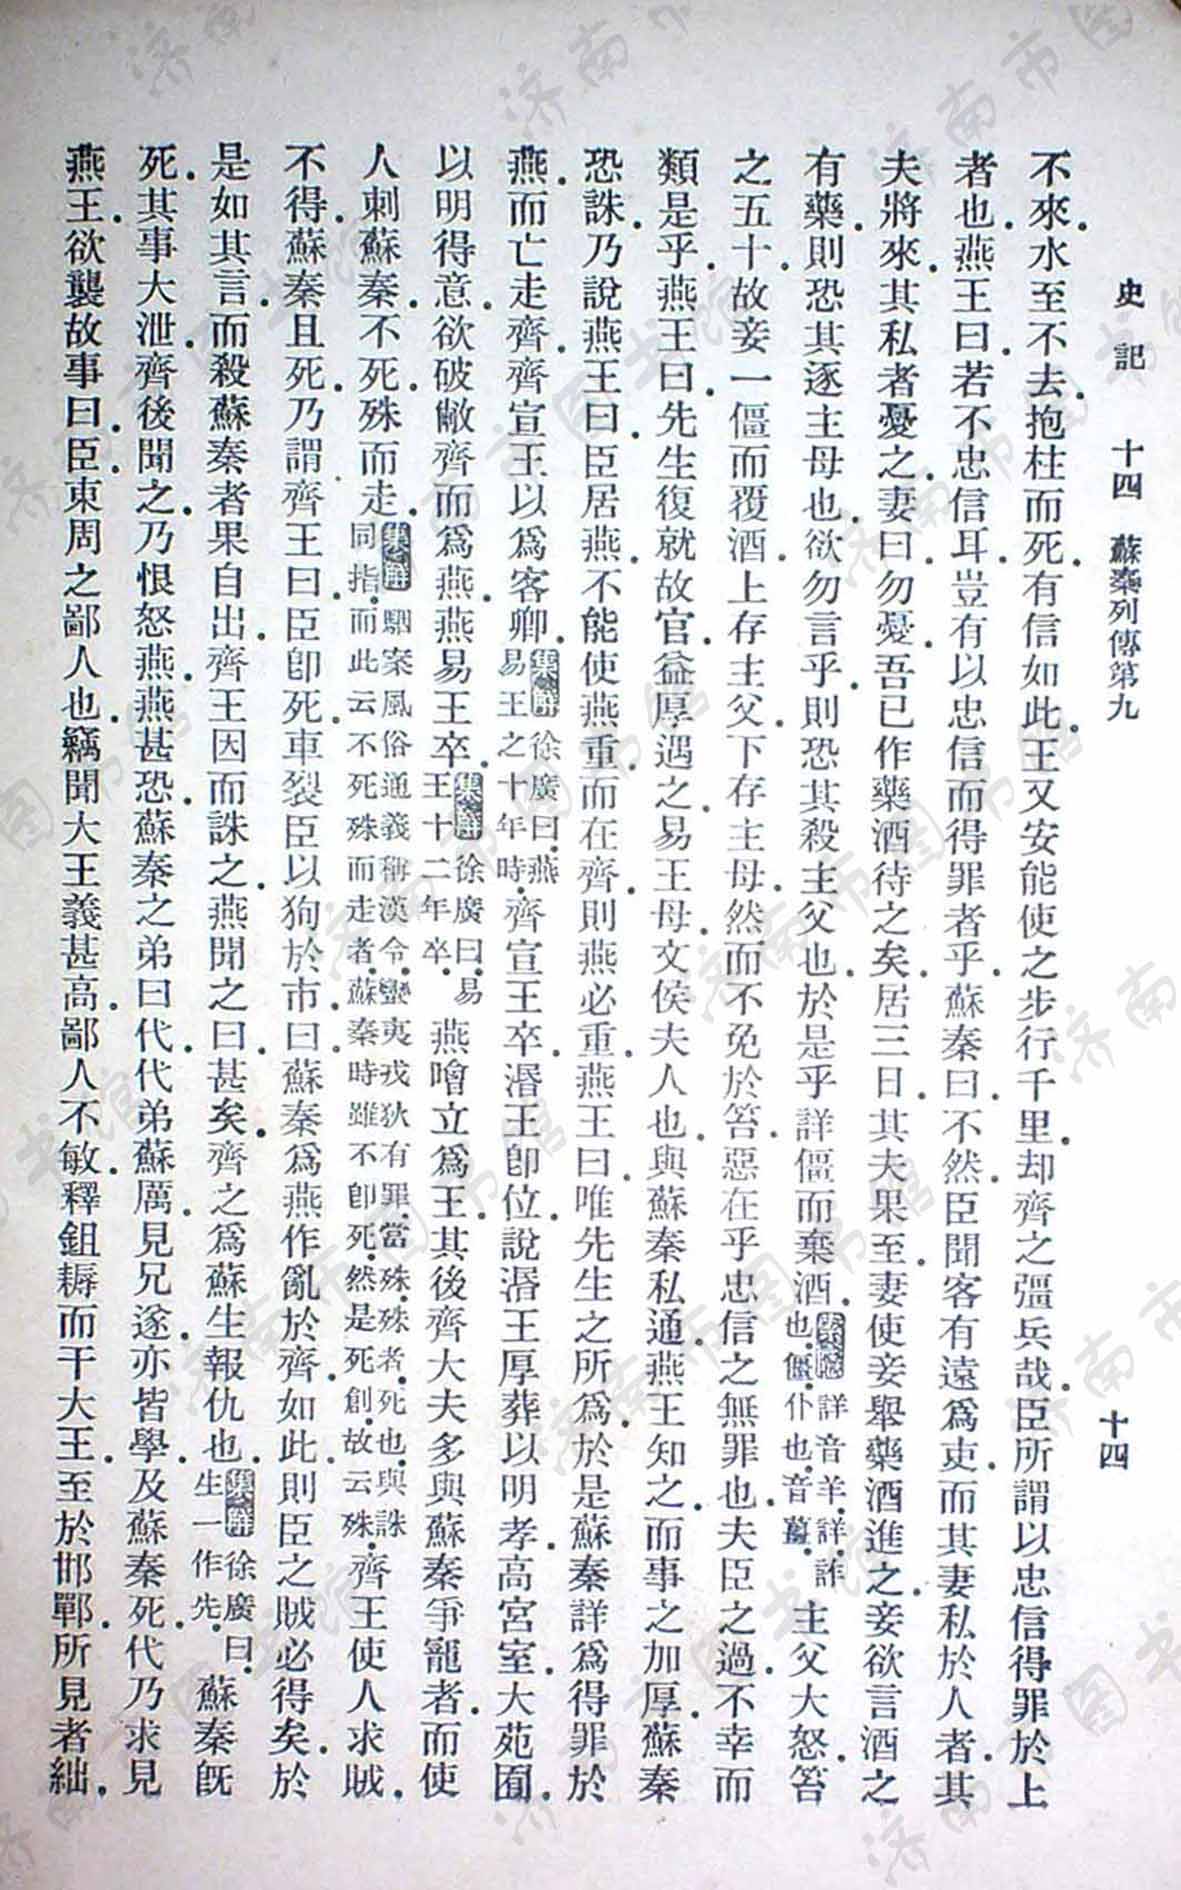 史記 十四 蘇秦列傳第九 十四
不來水至不去抱柱而死有信如此王又安能使之步行千里却齊之彊兵哉臣所謂以忠信得罪於上
者也燕王曰若不忠信耳豈有以忠信而得罪者乎蘇秦曰不然臣聞客有遠爲吏而其妻私於人者其
夫將來其私者憂之妻曰勿憂吾已作藥酒待之矣居三日其夫果至妻使妾舉藥酒進之妾欲言酒之
有藥則恐其逐主母也欲勿言乎則恐其殺主父也於是乎詳僵而棄酒索隱詳音羊詳詐也僵仆也音薑主父大怒笞
之五十故妾一僵而覆酒上存主父下存主母然而不免於笞惡在乎忠信之無罪也夫臣之過不幸而
類是乎燕王曰先生復就故官益厚遇之易王母文侯夫人也與蘇秦私通燕王知之而事之加厚蘇秦
恐誅乃說燕王曰臣居燕不能使燕重而在齊則燕必重燕王曰唯先生之所爲於是蘇秦詳爲得罪於
燕而亡走齊齊宣王以爲客卿集解徐廣曰燕易王之十年時齊宣王卒湣王卽位說湣王厚葬以明孝高宮室大苑囿
以明得意欲破敝齊而爲燕燕易王卒集解徐廣曰易王十二年卒燕噲立爲王其後齊大夫多與蘇秦爭寵者而使
人刺蘇秦不死殊而走集解駰案風俗通義稱漢令蠻夷戎狄有罪當殊殊者死也與誅同指而此云不死殊而走者蘇秦時雖不卽死然是死創故云殊齊王使人求賊
不得蘇秦且死乃謂齊王曰臣卽死車裂臣以狥於市曰蘇秦爲燕作亂於齊如此則臣之賊必得矣於
是如其言而殺蘇秦者果自出齊王因而誅之燕聞之曰甚矣齊之爲蘇生報仇也集解徐廣曰生一作先蘇秦旣
死其事大泄齊後聞之乃恨怒燕燕甚恐蘇秦之弟曰代代弟蘇厲見兄遂亦皆學及蘇秦死代乃求見
燕王欲襲故事曰臣東周之鄙人也竊聞大王義甚高鄙人不敏釋鉏耨而干大王至於邯鄲所見者絀